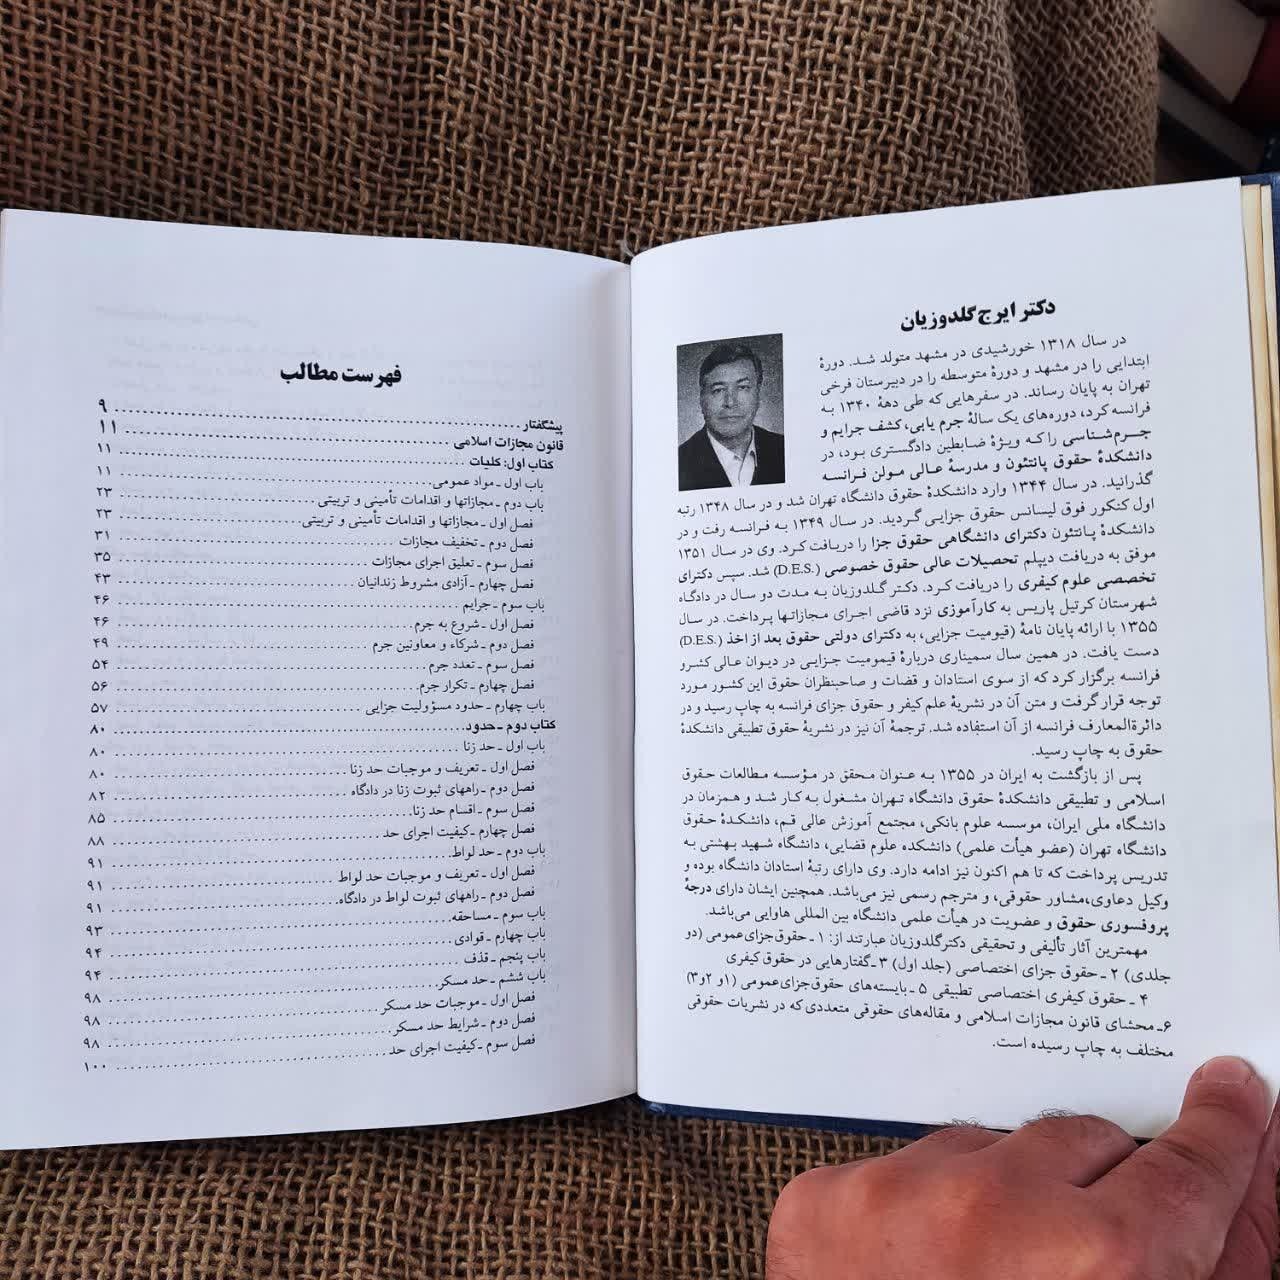 دکتر ایرج گلدوزیان
در سال ۱۳۱۸ خورشیدی در مشهد متولد شد. دورهٔ
ابتدایی را در مشهد و دورهٔ متوسطه را در دبیرستان فرخی
تهران به پایان رساند. در سفرهایی که طی دههٔ ۱۳۴۰ به
فرانسه کرد، دوره‌های یک سالهٔ جرم یابی، کشف جرایم و
جرم‌شناسی را که ویژهٔ ضابطین دادگستری بود، در
دانشکدهٔ حقوق پانتئون و مدرسهٔ عالی مولن فرانسه
گذرانید. در سال ۱۳۴۴ وارد دانشکدهٔ حقوق دانشگاه تهران شد و در سال ۱۳۴۸ رتبه
اول کنکور فوق لیسانس حقوق جزایی گردید. در سال ۱۳۴۹ به فرانسه رفت و در
دانشکدهٔ پانتئون دکترای دانشگاهی حقوق جزا را دریافت کرد. وی در سال ۱۳۵۱
موفق به دریافت دیپلم تحصیلات عالی حقوق خصوصی (D.E.S.) شد. سپس دکترای
تخصصی علوم کیفری را دریافت کرد. دکتر گلدوزیان به مدت دو سال در دادگاه
شهرستان کرتیل پاریس به کارآموزی نزد قاضی اجرای مجازاتها پرداخت. در سال
۱۳۵۵ با ارائه پایان نامهٔ (قیومیت جزایی، به دکترای دولتی حقوق بعد از اخذ (D.E.S.)
دست یافت. در همین سال سمیناری دربارهٔ قیمومیت جزایی در دیوان عالی کشور
فرانسه برگزار کرد که از سوی استادان و قضات و صاحبنظران حقوق این کشور مورد
توجه قرار گرفت و متن آن در نشریهٔ علم کیفر و حقوق جزای فرانسه به چاپ رسید و در
دائرةالمعارف فرانسه از آن استفاده شد. ترجمهٔ آن نیز در نشریهٔ حقوق تطبیقی دانشکدهٔ
حقوق به چاپ رسید.
پس از بازگشت به ایران در ۱۳۵۵ به عنوان محقق در مؤسسه مطالعات حقوق
اسلامی و تطبیقی دانشکدهٔ حقوق دانشگاه تهران مشغول به کار شد و همزمان در
دانشگاه ملی ایران، موسسه علوم بانکی، مجتمع آموزش عالی قم، دانشکدهٔ حقوق
دانشگاه تهران (عضو هیأت علمی) دانشکده علوم قضایی، دانشگاه شهید بهشتی به
تدریس پرداخت که تا هم اکنون نیز ادامه دارد. وی دارای رتبهٔ استادان دانشگاه بوده و
وکیل دعاوی، مشاور حقوقی، و مترجم رسمی نیز می‌باشد. همچنین ایشان دارای درجهٔ
پروفسوری حقوق و عضویت در هیأت علمی دانشگاه بین المللی هاوایی می‌باشد.
مهمترین آثار تألیفی و تحقیقی دکتر گلدوزیان عبارتند از: ۱ ـ حقوق جزای عمومی (دو
جلدی) ۲ ـ حقوق جزای اختصاصی (جلد اول) ۳ ـ گفتارهایی در حقوق کیفری
۴ ـ حقوق کیفری اختصاصی تطبیقی ۵ ـ بایسته‌های حقوق جزای عمومی (۱و ۲و۳)
۶ـ محشای قانون مجازات اسلامی و مقاله‌های حقوقی متعددی که در نشریات حقوقی
مختلف به چاپ رسیده است.
فهرست مطالب
پیشگفتار ........ ۹
قانون مجازات اسلامی ........ ۱۱
کتاب اول: کلیات ........ ۱۱
باب اول ـ مواد عمومی ........ ۱۱
باب دوم ـ مجازاتها و اقدامات تأمینی و تربیتی ........ ۲۳
فصل اول ـ مجازاتها و اقدامات تأمینی و تربیتی ........ ۲۳
فصل دوم ـ تخفیف مجازات ........ ۳۱
فصل سوم ـ تعلیق اجرای مجازات ........ ۳۵
فصل چهارم ـ آزادی مشروط زندانیان ........ ۴۳
باب سوم ـ جرایم ........ ۴۶
فصل اول ـ شروع به جرم ........ ۴۶
فصل دوم ـ شرکاء و معاونین جرم ........ ۴۹
فصل سوم ـ تعدد جرم ........ ۵۴
فصل چهارم ـ تکرار جرم ........ ۵۶
باب چهارم ـ حدود مسؤولیت جزایی ........ ۵۷
کتاب دوم ـ حدود ........ ۸۰
باب اول ـ حد زنا ........ ۸۰
فصل اول ـ تعریف و موجبات حد زنا ........ ۸۰
فصل دوم ـ راههای ثبوت زنا در دادگاه ........ ۸۲
فصل سوم ـ اقسام حد زنا ........ ۸۵
فصل چهارم ـ کیفیت اجرای حد ........ ۸۸
باب دوم ـ حد لواط ........ ۹۱
فصل اول ـ تعریف و موجبات حد لواط ........ ۹۱
فصل دوم ـ راههای ثبوت لواط در دادگاه ........ ۹۱
باب سوم ـ مساحقه ........ ۹۳
باب چهارم ـ قوادی ........ ۹۴
باب پنجم ـ قذف ........ ۹۴
باب ششم ـ حد مسکر ........ ۹۸
فصل اول ـ موجبات حد مسکر ........ ۹۸
فصل دوم ـ شرایط حد مسکر ........ ۹۸
فصل سوم ـ کیفیت اجرای حد ........ ۱۰۰